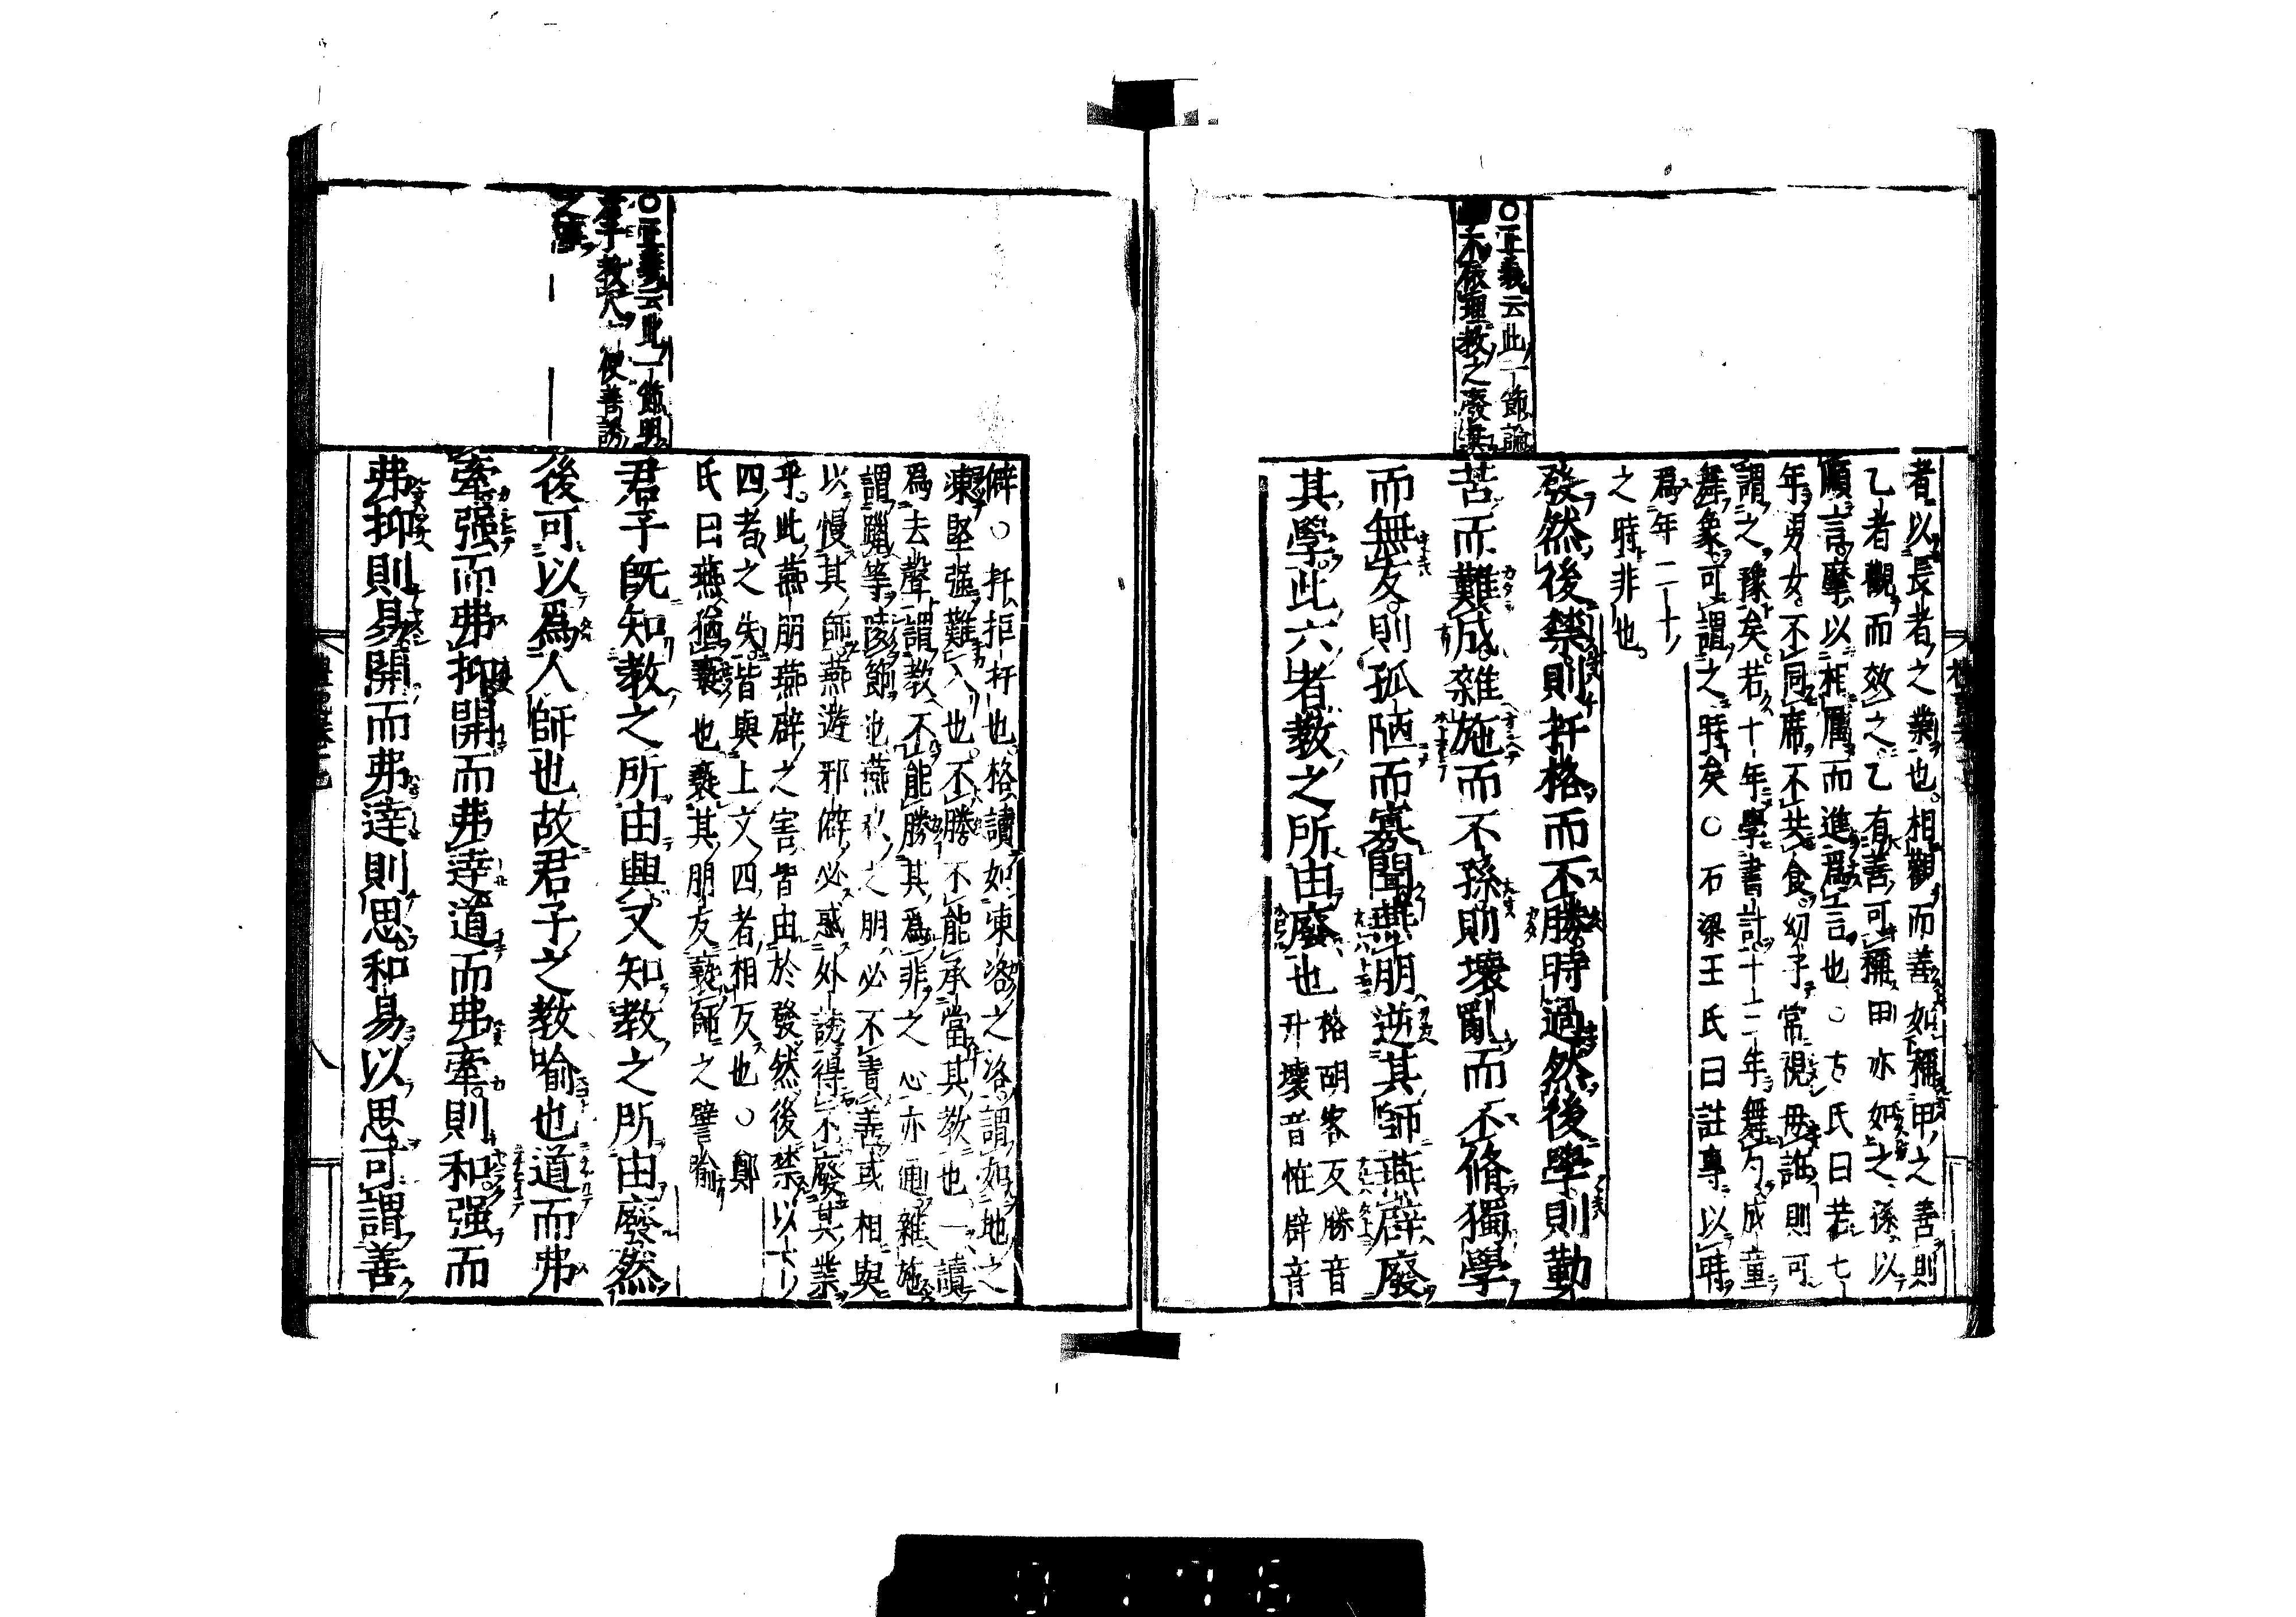 者以長者之業也相觀而善如稱甲之善則
乙者觀而效之乙有善可稱甲亦如之孫以
順言摩以相厲而進爲言也○方氏曰若七
年男女不同席不共食幼子常視毋誑則可
謂之豫矣若十年學書計十二年舞勺成童
舞象可謂之時矣○石梁王氏曰註專以時
爲年二十
之時非也
發然後禁則扞格而不勝時過然後學則勤
苦而難成雜施而不孫則壞亂而不脩獨學
而無友則孤陋而寡聞燕朋逆其師燕辟廢
其學此六者教之所由廢也
格胡客反勝音
升壞音怪辟音
○正義云此一節論
不依理教之廢
僻○扞拒扞也格讀如凍洛之洛謂如地之
凍堅强難入也不勝不能承當其教也一讀
爲去聲謂教不能勝其爲非之心亦通雜施
謂躐等陵節也燕私之朋必不責善或相與
以慢其師燕遊邪僻必惑外誘得不廢其業
乎此燕朋燕辟之害皆由於發然後禁以下
四者之失皆與上文四者相反也○鄭
氏曰燕猶褻也褻其朋友褻師之譬喻
君子既知教之所由興又知教之所由廢然
後可以爲人師也故君子之教喻也道而弗
牽强而弗抑開而弗達道而弗牽則和强而
弗抑則易開而弗達則思和易以思可謂善
○正義云此一節明
君子教人使善誘
之事